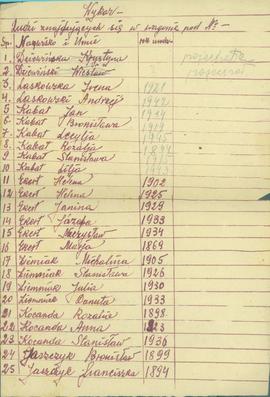 Wykaz
Ludzi znajdujących się w wagonie pod Nº
Lp. Nazwisko i Imię rok urodz.
1. Krystyna
2. Wiesław
3. Laskowska Irena 1921
4. Laskowski Andrzej
5. Kabat Jan
6. Kabat Bronisława
7. Kabat Cecylia
8. Kabat Rozalia
9. Kabat Stanisława
10 Kabat
11 Ekert Helena 1902
12 Ekert Helina 1925
13 Ekert Janina 1929
14 Ekert Józefa 1933
15 Ekert Mieczysław 1934
16 Ekert Maria 1869
17 Ziemiak Michalina 1905
18 Ziemniak Stanisława 1926
19 Ziemniak Julia 1930
20 Ziemniak Danuta 1933
21 Kocanda Rozalia 1898
22 Kocanda Anna
23 Kocanda Stanisław 1936
24 Jaszczyk Bronisław 1899
25 Jaszczyk Franciszka 1894